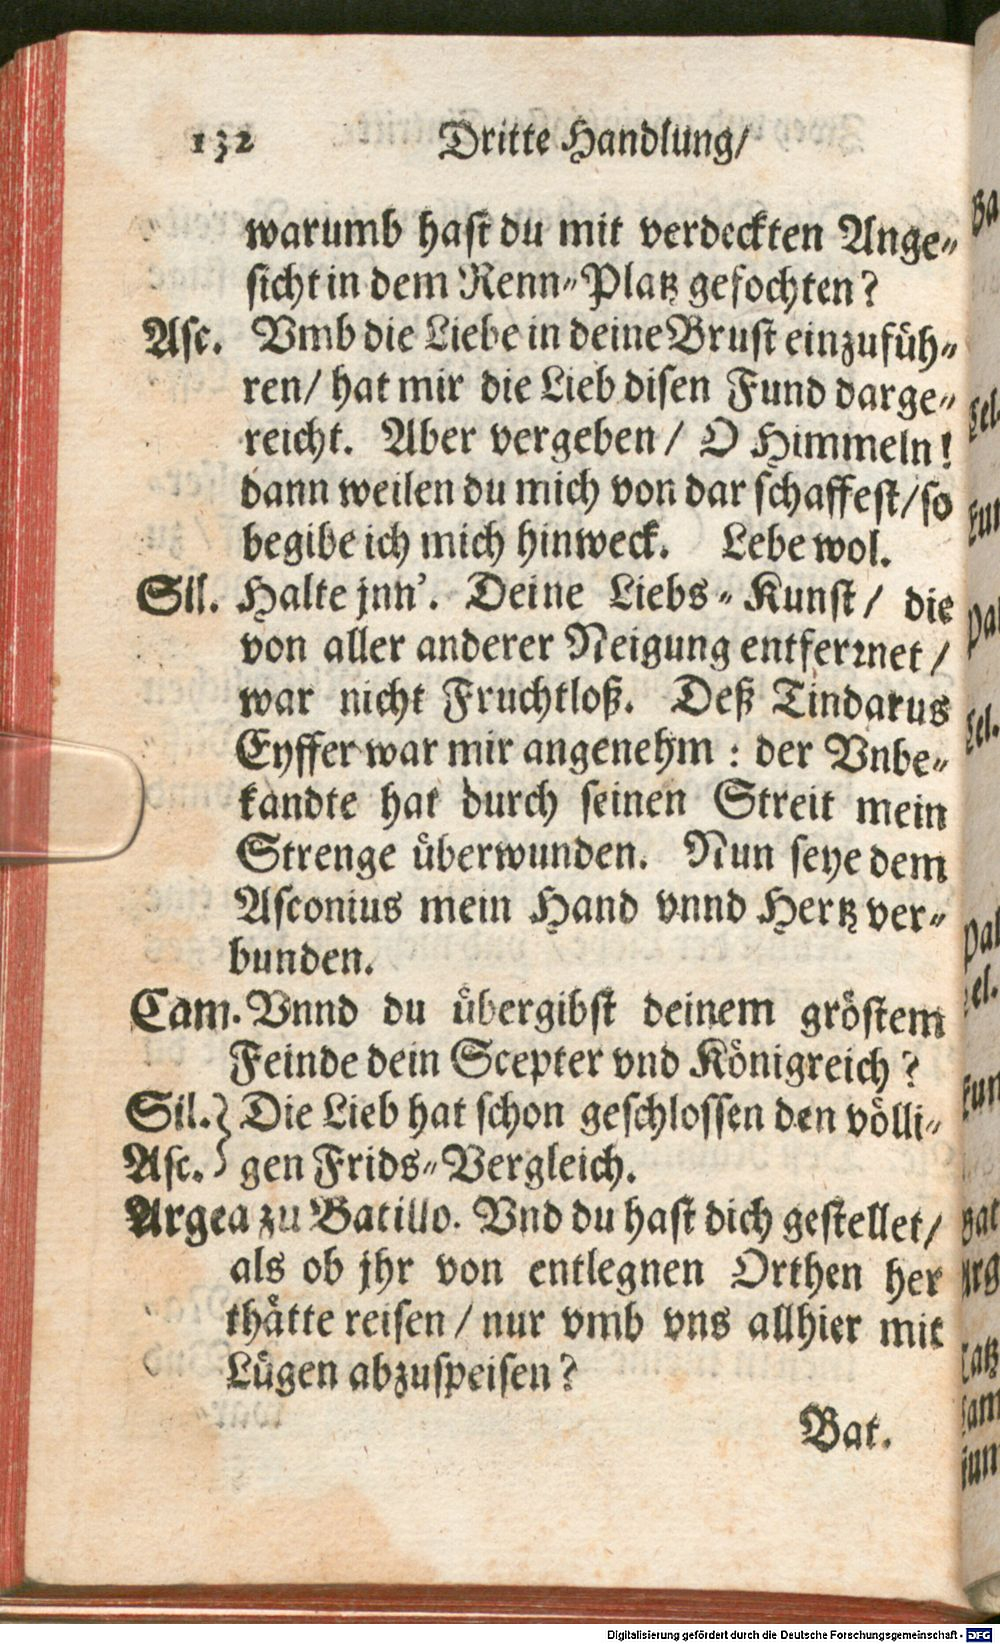 132 Dritte Handlung/
warumb hast du mit verdeckten Ange-
sicht in dem Renn-Platz gefochten?
Asc. Vmb die Liebe in deine Brust einzufüh-
ren/ hat mir die Lieb disen Fund darge-
reicht. Aber vergeben/ O Himmeln!
dann weilen du mich von dar schaffest/so
begibe ich mich hinweck. Lebe wol.
Sil. Halte jnn'. Deine Liebs-Kunst/ die
von aller anderer Neigung entferꝛnet/
war nicht Fruchtloß. Deß Tindarus
Eyffer war mir angenehm: der Vnbe-
kandte hat durch seinen Streit mein
Strenge überwunden. Nun seye dem
Asconius mein Hand vnnd Hertz ver-
bunden.
Cam. Vnnd du übergibst deinem gröstem
Feinde dein Scepter vnd Königreich?
Sil.} Die Lieb hat schon geschlossen den völli-
Asc.} gen Frids-Vergleich.
Argea zu Batillo. Vnd du hast dich gestellet/
als ob jhr von entlegnen Orthen her
thätte reisen/ nur vmb vns allhier mit
Lügen abzuspeisen?
Bat.
Digitalisierung gefördert durch die Deutsche Forschungsgemeinschaft - DFG